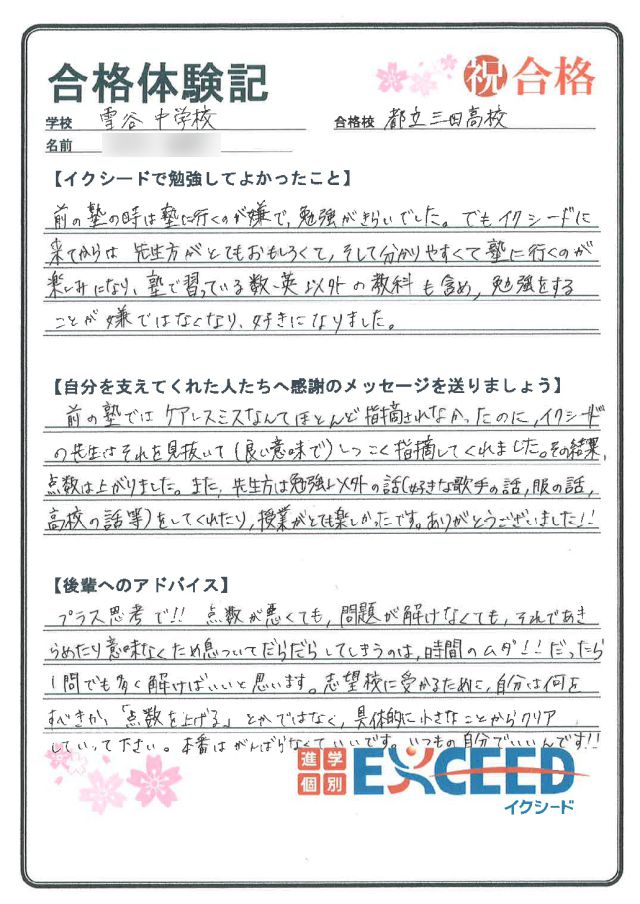 合格体験記
祝 合格
学校 雪谷中学校
合格校 都立三田高校
名前
【イクシードで勉強してよかったこと】
前の塾の時は塾に行くのが嫌で、勉強がきらいでした。でもイクシードに
来てからは先生方がとてもおもしろくて、そして分かりやすくて塾に行くのが
楽しみになり、塾で習っている数・英以外の教科も含め、勉強をする
ことが嫌ではなくなり、好きになりました。
【自分を支えてくれた人たちへ感謝のメッセージを送りましょう】
前の塾ではケアレスミスなんてほとんど指摘されなかったのに、イクシード
の先生はそれを見抜いて(良い意味で)しつこく指摘してくれました。その結果、
点数は上がりました。また、先生方は勉強以外の話(好きな歌手の話,服の話,
高校の話等)をしてくれたり,授業がとても楽しかったです。ありがとうございました!!
【後輩へのアドバイス】
プラス思考で!! 点数が悪くても,問題が解けなくても,それであき
らめたり意味なくため息ついてだらだらしてしまうのは,時間のムダ!!だったら
1問でも多く解けばいいと思います。志望校に受かるために,自分は何を
すべきか,「点数を上げる」とかではなく,具体的に小さなことからクリア
していって下さい。本番はがんばらなくていいです。いつもの自分でいいんです!!
進学
個別
EXCEED
イクシード